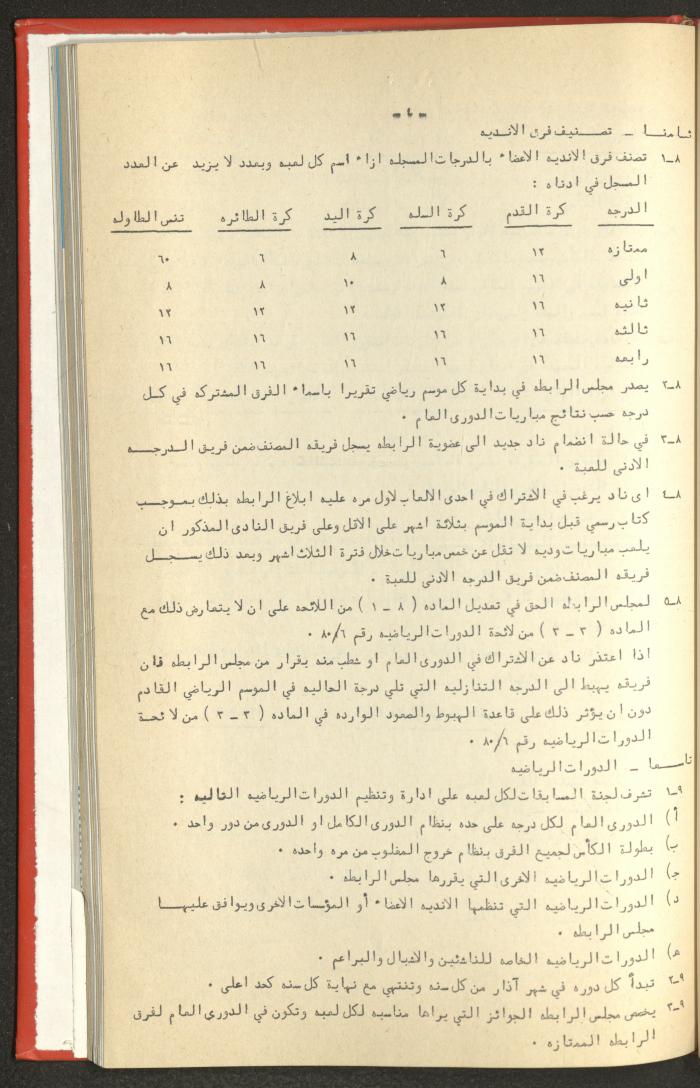 - ٤ -
ثامنا - تصنيف فرق الانديه
٨-١ تصنف فرق الانديه الاعضاء بالدرجات المسجله ازاء اسم كل لعبه وبعدد لا يزيد عن العدد
المسجل في ادناه :
الدرجه كرة القدم كرة السله كرة اليد كرة الطائره تنس الطاوله
ممتازه ١٢ ٦ ٨ ٦ ٦٠
اولى ١٦ ٨ ١٠ ٨ ٨
ثانيه ١٦ ١٢ ١٢ ١٢ ١٢
ثالثه ١٦ ١٦ ١٦ ١٦ ١٦
رابعه ١٦ ١٦ ١٦ ١٦ ١٦
٨-٢ يصدر مجلس الرابطه في بداية كل موسم رياضي تقريرا باسماء الفرق المشتركه في كل
درجه حسب نتائج مباريات الدورى العام .
٨-٣ في حالة انضمام ناد جديد الى عضوية الرابطه يسجل فريقه المصنف ضمن فريق الدرجه
الادنى للعبة .
٨-٤ اى ناد يرغب في الاشتراك في احدى الالعاب لاول مره عليه ابلاغ الرابطه بذلك بموجب
كتاب رسمي قبل بداية الموسم بثلاثة اشهر على الاقل وعلى فريق النادى المذكور ان
يلعب مباريات وديه لا تقل عن خمس مباريات خلال فترة الثلاث اشهر وبعد ذلك يسجل
فريقه المصنف ضمن فريق الدرجه الادنى للعبة .
٨-٥ لمجلس الرابطه الحق في تعديل الماده ( ٨ - ١ ) من اللائحه على ان لا يتعارض ذلك مع
الماده ( ٣ - ٣ ) من لائحة الدورات الرياضيه رقم ٨٠/٦ .
اذا اعتذر ناد عن الاشتراك في الدورى العام او شطب منه بقرار من مجلس الرابطه فان
فريقه يهبط الى الدرجه التنازليه التي تلي درجة الحاليه في الموسم الرياضي القادم
دون ان يؤثر ذلك على قاعدة الهبوط والصعود الوارده في الماده ( ٣ - ٣ ) من لائحة
الدورات الرياضيه رقم ٨٠/٦ .
تاسعا - الدورات الرياضيه
٩-١ تشرف لجنة المسابقات لكل لعبه على ادارة وتنظيم الدورات الرياضيه التاليه :
أ) الدورى العام لكل درجه على حده بنظام الدورى الكامل او الدورى من دور واحد .
ب) بطولة الكأس لجميع الفرق بنظام خروج المغلوب من مره واحده .
ج) الدورات الرياضيه الاخرى التي يقررها مجلس الرابطه .
د) الدورات الرياضيه التي تنظمها الانديه الاعضاء أو المؤسسات الاخرى ويوافق عليها
مجلس الرابطه .
ه) الدورات الرياضيه الخاصه للناشئين والاشبال والبراعم .
٩-٢ تبدأ كل دوره في شهر آذار من كل سنه وتنتهي مع نهاية كل سنه كحد اعلى .
٩-٣ يخصص مجلس الرابطه الجوائز التي يراها مناسبه لكل لعبه وتكون في الدورى العام لفرق
الرابطه الممتازه .